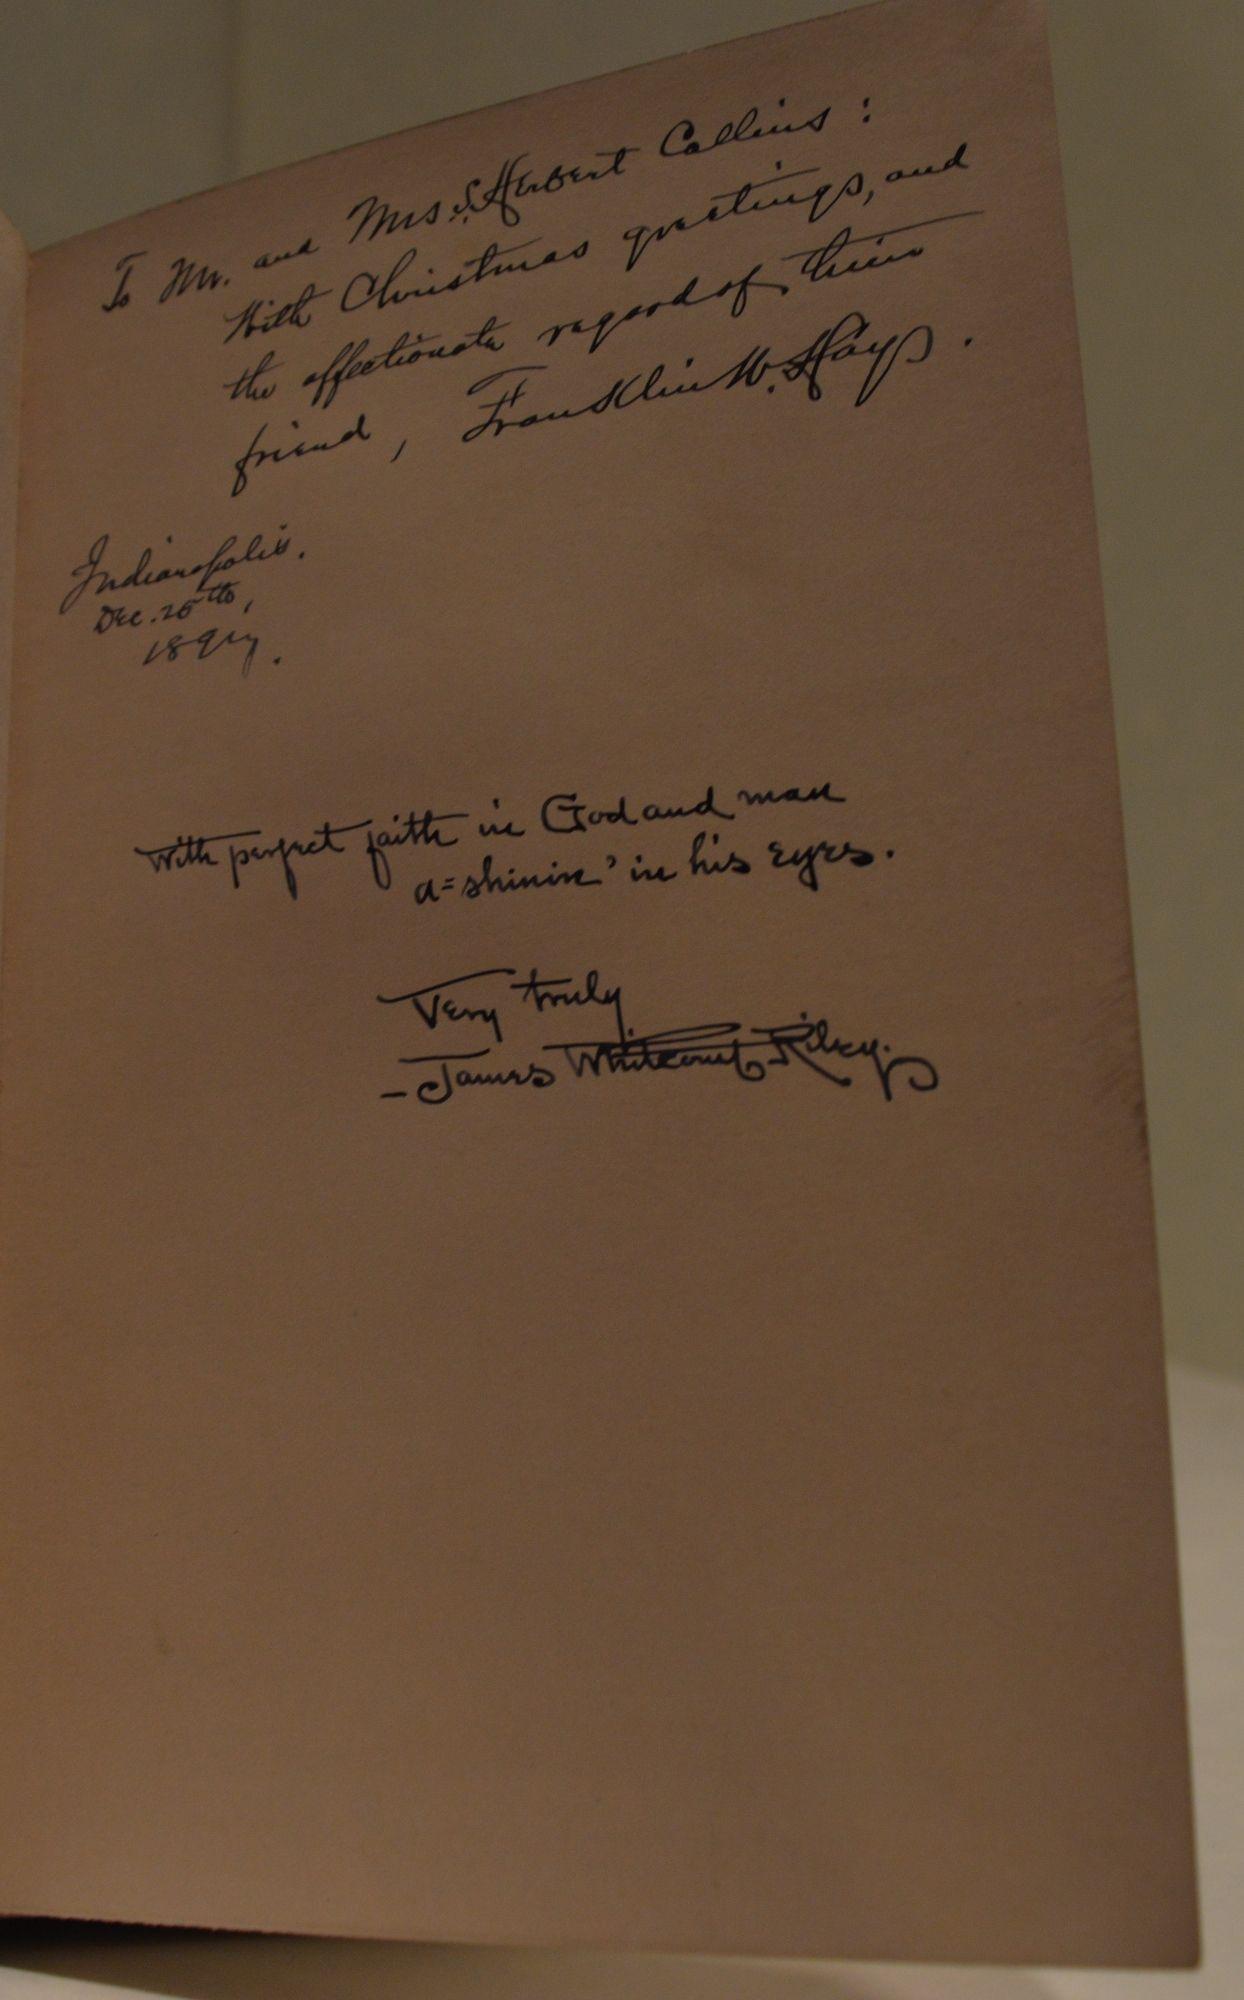 To Mr. and Mrs. S. Herbert Collins:
With Christmas greetings, and
the affectionate regard of their
friend, Franklin W. Hays.
Indianapolis.
Dec. 25th,
1897.
With perfect faith in God and man
a-shinin' in his eyes.
Very truly
-James Whitcomb Riley.